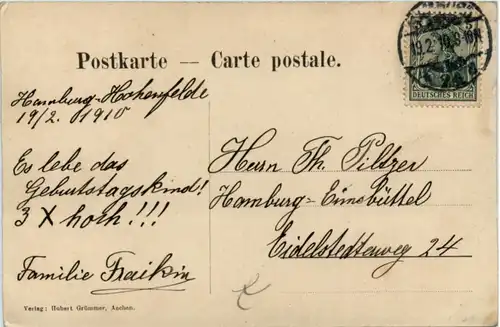 Postkarte — Carte postale.
19.2.10.
DEUTSCHES REICH
Hamburg-Hohenfelde
19/2. 1910
Es lebe das
Geburtstagskind!
3 X hoch!!!
Familie Fraikin
Herrn Th. Piltzer
Hamburg-Eimsbüttel
Eidelstedterweg 24
Verlag: Hubert Grümmer, Aachen.